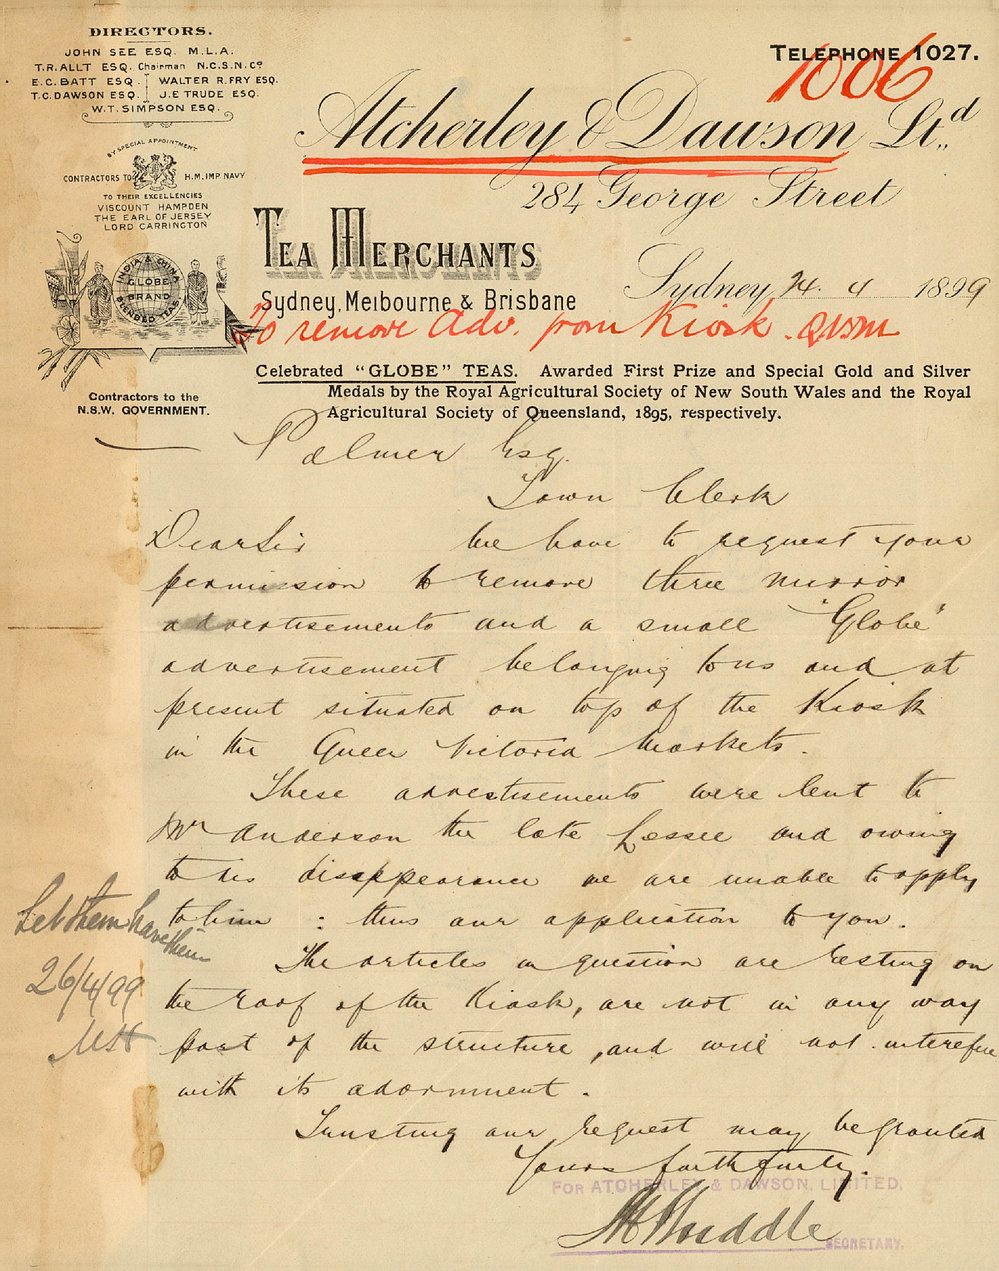 DIRECTORS.
JOHN SEE ESQ. M.L.A.
T.R. ALLT ESQ. Chairman N.C.S.N.Co
E.C. BATT ESQ. WALTER R. FRY ESQ.
T.C. DAWSON ESQ. J.E TRUDE ESQ.
W.T. SIMPSON ESQ.
TELEPHONE 1027.
1006
Atcherley & Dawson Ltd
284 George Street
BY SPECIAL APPOINTMENT
CONTRACTORS TO H.M. IMP. NAVY
TO THEIR EXCELLENCIES
VISCOUNT HAMPDEN
THE EARL OF JERSEY
LORD CARRINGTON
INDIA & CHINA
GLOBE
BRAND
BLENDED TEAS
Contractors to the
N.S.W. GOVERNMENT.
TEA MERCHANTS
Sydney, Melbourne & Brisbane
Sydney, 24. 4 1899
To remove Adv. from Kiosk. QVM
Celebrated "GLOBE" TEAS. Awarded First Prize and Special Gold and Silver
Medals by the Royal Agricultural Society of New South Wales and the Royal
Agricultural Society of Queensland, 1895, respectively.
Palmer Esq.
Town Clerk
Dear Sir We have to request your
permission to remove three mirror
advertisements and a small "Globe"
advertisement belonging to us and at
present situated on top of the Kiosk
in the Queen Victoria Markets.
These advertisements were lent to
Mr Anderson the late Lessee and owing
to his disappearance we are unable to apply
to him : thus our application to you.
The articles in question are resting on
the roof of the Kiosk, are not in any way
part of the structure, and will not interefere
with its adornment.
Trusting our request may be granted
Yours faithfully.
FOR ATCHERLEY & DAWSON, LIMITED.
SECRETARY.
Let them have them
26/4/99